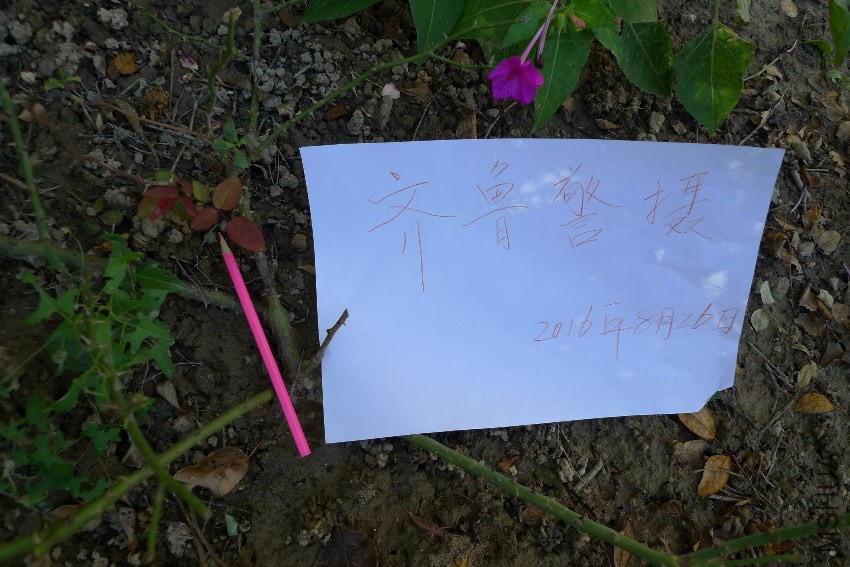 齐鲁警摄
2016年8月26日